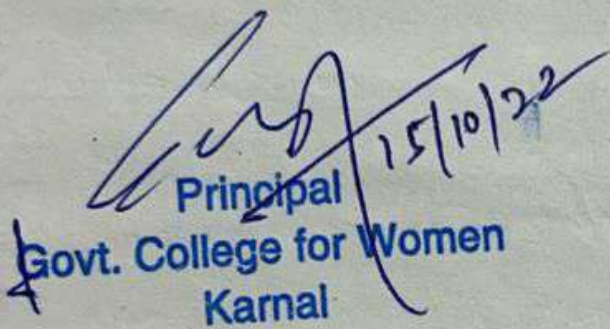 15/10/22
Principal
Govt. College for Women
Karnal